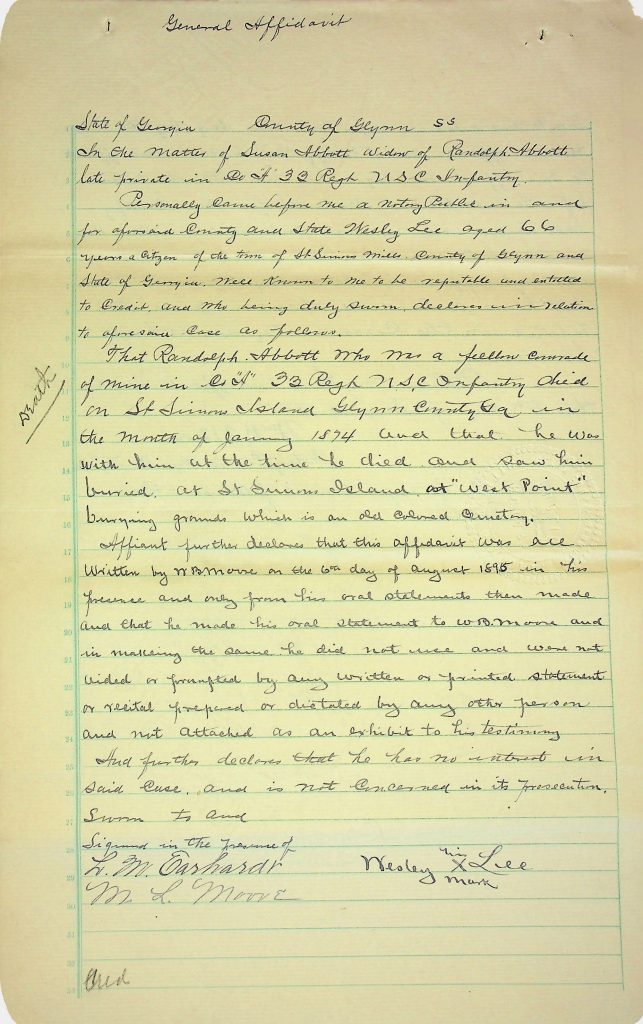 General Affidavit
State of Georgia County of Glynn SS
In the Matter of Susan Abbott Widow of Randolph Abbott
late private in Co "A" 33 Regt U S C Infantry.
Personally Came before me a Notory Public in and
for aforsaid County and State Wesley Lee aged 66
years a Citizen of the town of St Simons Mills. County of Glynn and
State of Georgia. Well Known to Me to be reputable and entitled
to Credit, and who being duly sworn, declares in relation
to aforesaid Case as follows.
That Randolph Abbott Who Was a fellow Comrade
of mine in Co "A" 33 Regt U.S.C Infantry died
on St Simons Island Glynn County Ga in
the Month of January 1874 and that he was
with him at the time he died and saw him
buried. at St Simons Island at "West Point"
burying grounds which is an old Colored Cemetery.
Death
Affiant further declares that this affidavit was all
Written by W B Moore on the 6th day of August 1895 in his
presence and only from his oral statements then made
and that he made his oral statement to W.B. Moore and
in makeing the same he did not use and were not
aided or prompted by any written or printed statement
or recital prepared or dictated by any other person
and not attached as an exhibit to his testimony
And further declares that he has no interest in
Said Case. and is not Concerned in its prosecution.
Sworn to and
Signed in the presence of
L. M. Earhardt
M. L. Moore
Wesley his X Lee
mark